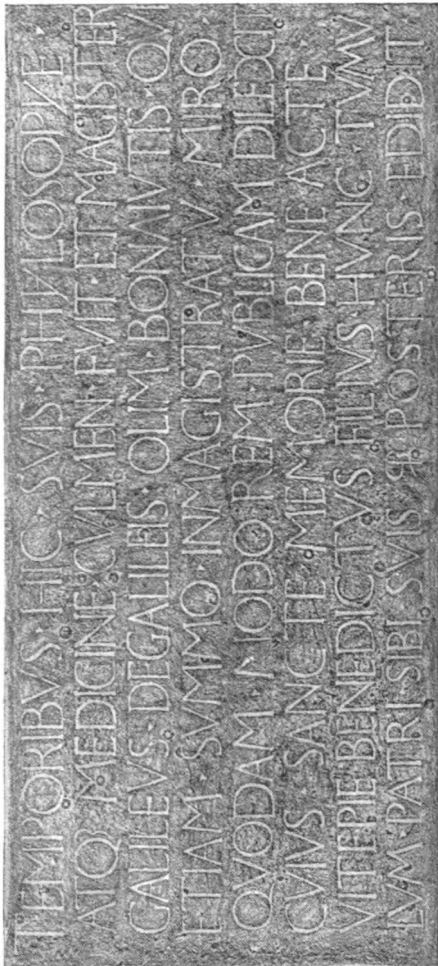 TEMPORIBVS · HIC · SVIS · PHYLOSOPIÆ ·
ATQ MEDICINE · CVLMEN · FVIT · ET · MAGISTER
GALILEVS · DEGALILEIS · OLIM · BONAIVTIS · QVI
ETIAM · SVMMO · INMAGISTRATV · MIRO ·
QVODAM · MODO REM · PVBLICAM DILEXIT
CVIVS · SANCTE · MEMORIE · BENE ACTE ·
VITEPIE BENEDICTVS FILIVS · HVNC · TVMV
LVM · PATRI SIBI · SVIS QZ · POSTERIS · EDIDIT